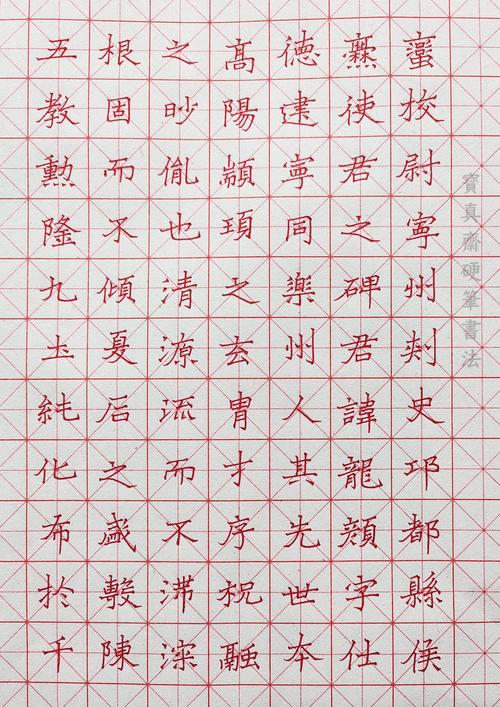 蠻校尉寧州刺史邛都縣侯
爨使君之碑君諱龍顏字仕
德建寧同樂州人其先世本
髙陽顓頊之玄冑才序祝融
之眇胤也清源流而不滯深
根固而不傾夏后之盛敷陳
五教勳隆九土純化布於千
寶真齋硬筆書法